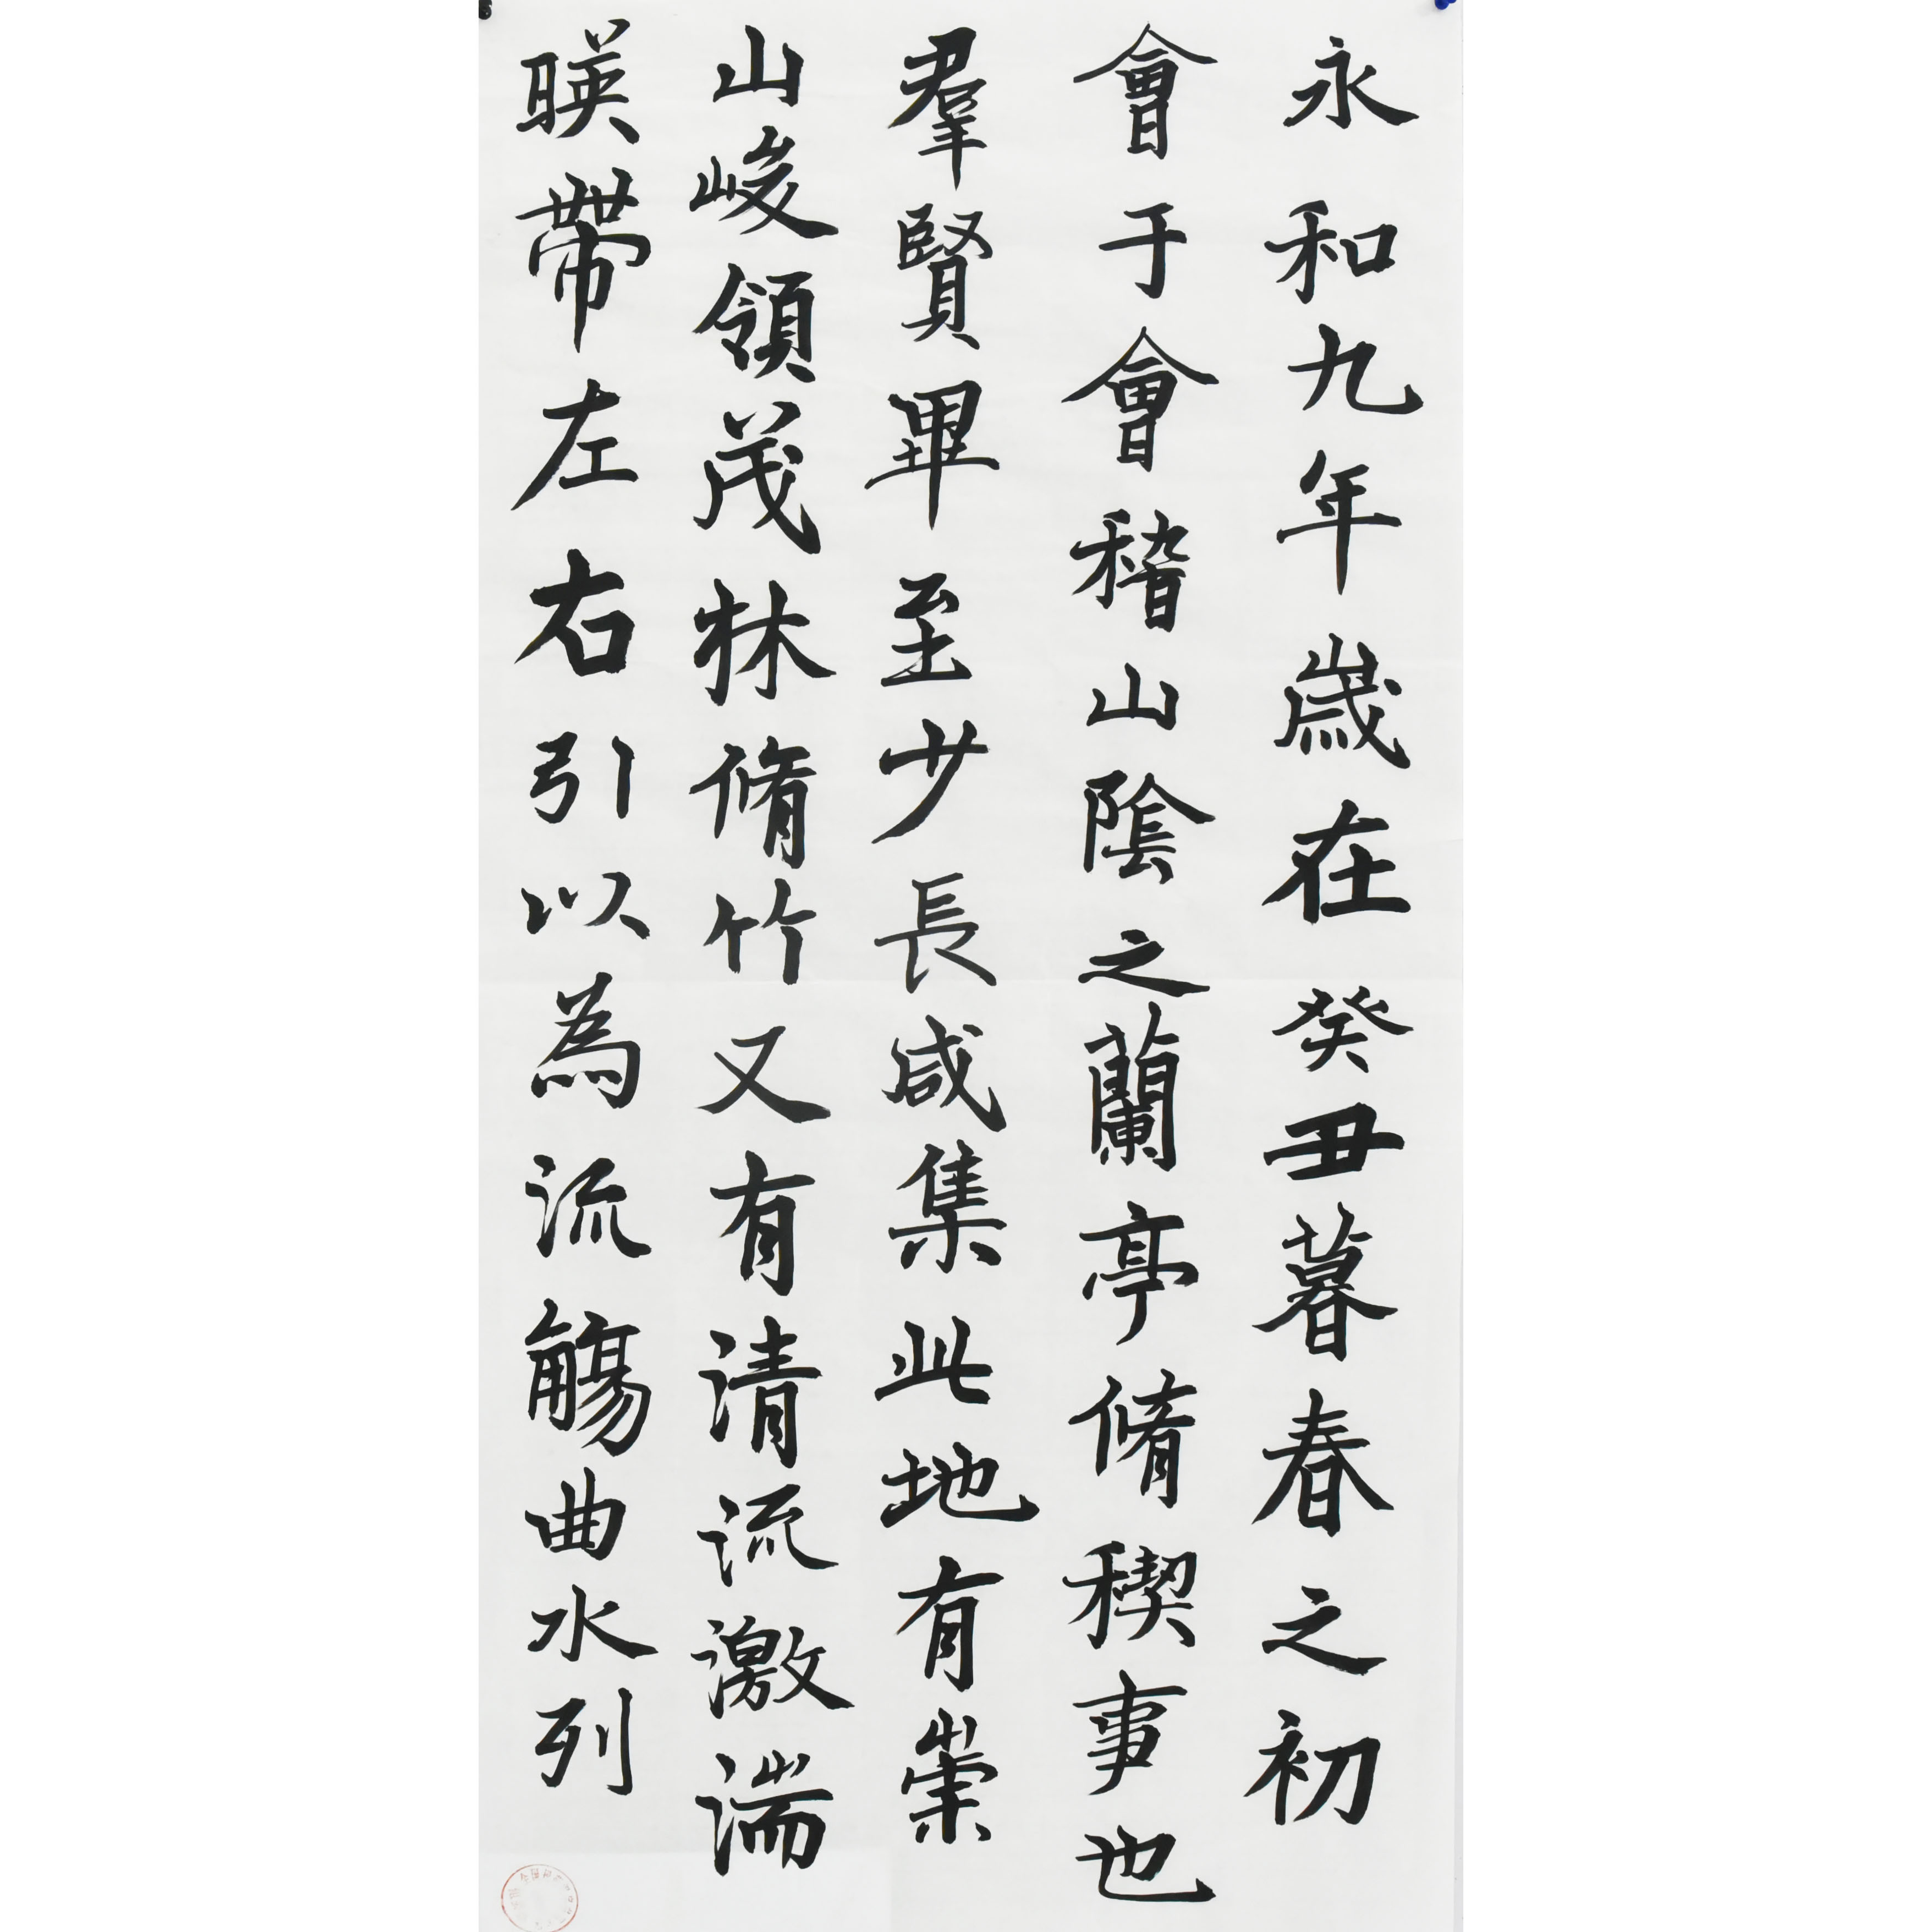 永和九年歲在癸丑暮春之初
會于會稽山陰之蘭亭脩稧事也
羣賢畢至少長咸集此地有崇
山峻領茂林脩竹又有清流激湍
暎帶左右引以為流觴曲水列